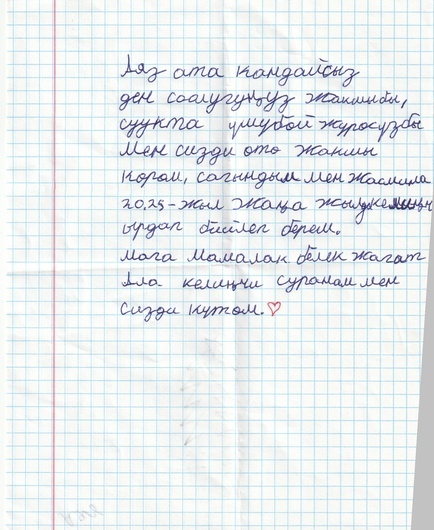 Аяз ата кандайсыз
ден соолугуңуз жакшыбы,
суукта үшүбөй жүрөсүзбү
Мен сизди ото жакшы
кором, сагындым мен Жасмина
2025-жыл Жаңа жылда келиңиз
ырдап бийлеп берем.
мага Мамалак белек жагат
Ала келиңчи суранам мен
сизди күтөм.